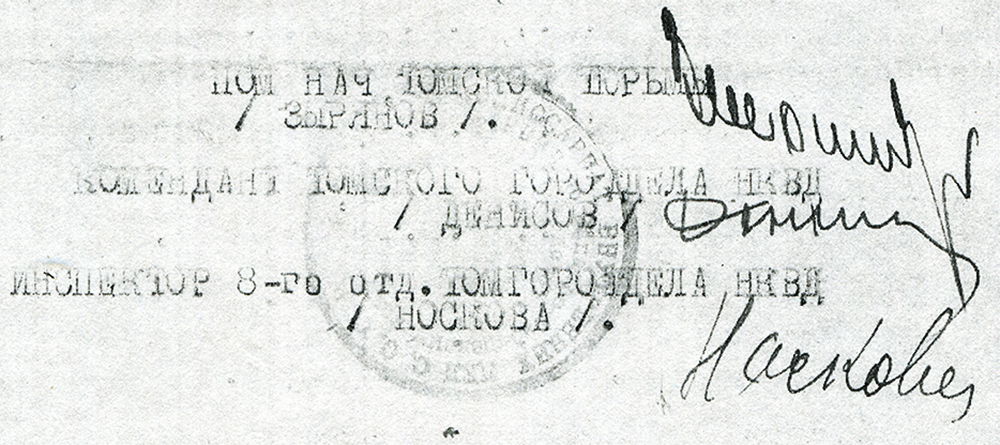 ПОМ НАЧ ТОМСКОЙ ТЮРЬМЫ
/ ЗЫРЯНОВ /.
КОМЕНДАНТ ТОМСКОГО ГОРОТДЕЛА НКВД
/ ДЕНИСОВ /
ИНСПЕКТОР 8-го отд. ТОМГОРОТДЕЛА НКВД
/ НОСКОВА /.
Носкова